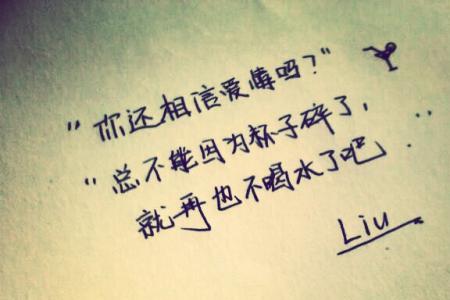 "你还相信爱情吗?"
"总不能因为杯子碎了,
就再也不喝水了吧
Liu